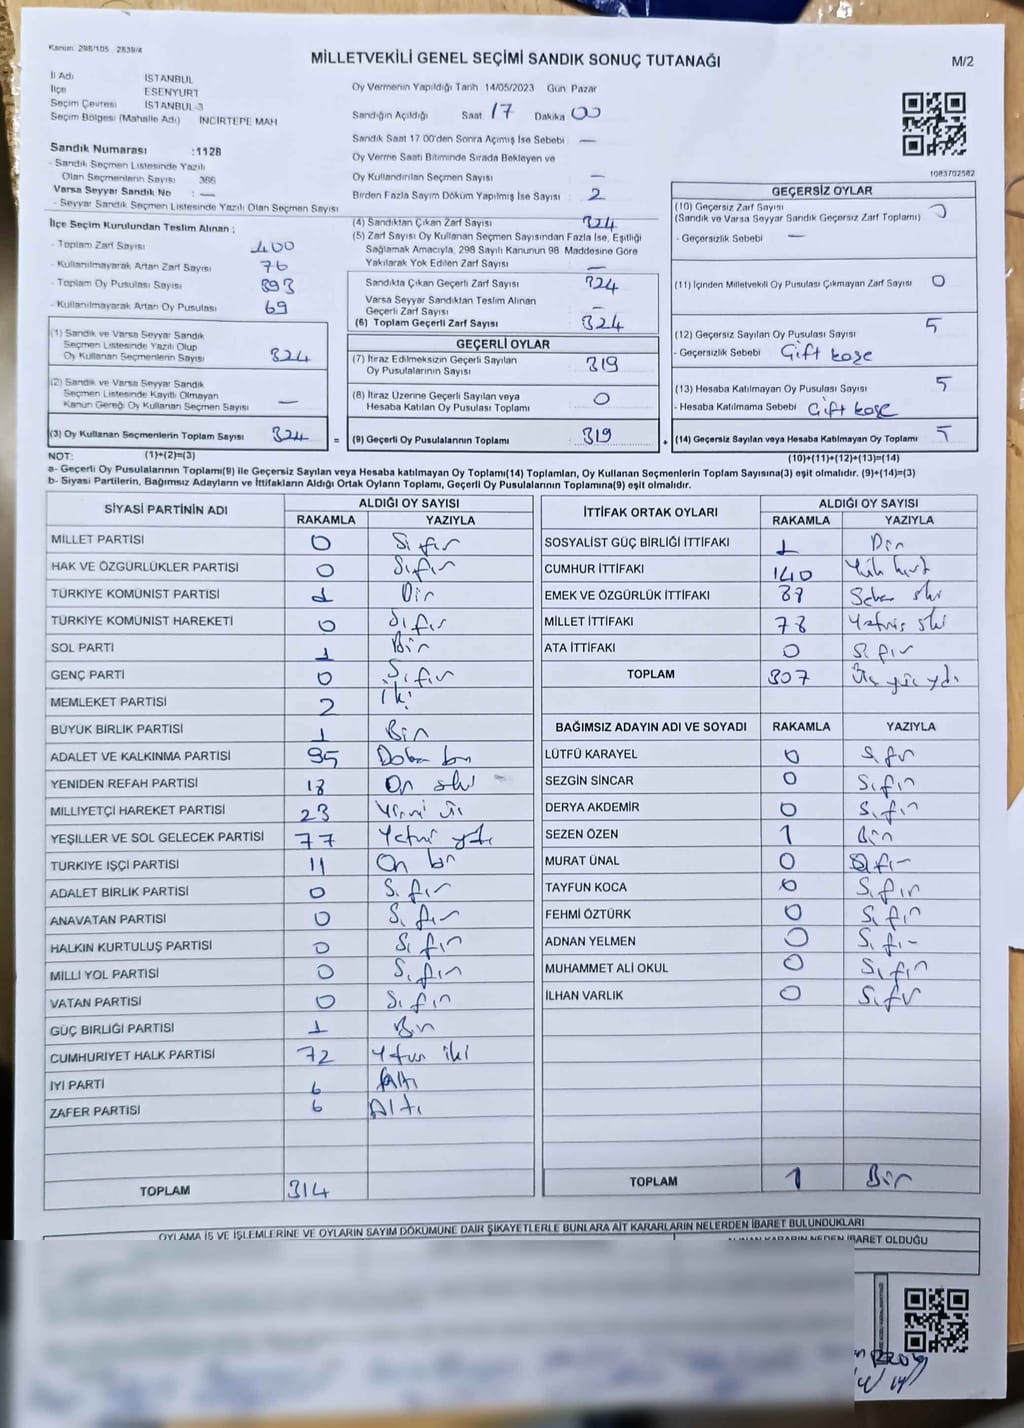 Kanun: 298/105 2839/4
MİLLETVEKİLİ GENEL SEÇİMİ SANDIK SONUÇ TUTANAĞI
M/2
İl Adı İSTANBUL
İlçe ESENYURT
Seçim Çevresi İSTANBUL-3
Seçim Bölgesi (Mahalle Adı) İNCİRTEPE MAH
Sandık Numarası :1128
- Sandık Seçmen Listesinde Yazılı
Olan Seçmenlerin Sayısı 366
Varsa Seyyar Sandık No : —
- Seyyar Sandık Seçmen Listesinde Yazılı Olan Seçmen Sayısı
Oy Vermenin Yapıldığı Tarih 14/05/2023 Gün Pazar
Sandığın Açıldığı Saat 17 Dakika 00
Sandık Saat 17 00'den Sonra Açımış İse Sebebi —
Oy Verme Saati Bitiminde Sırada Bekleyen ve
Oy Kullandırılan Seçmen Sayısı —
Birden Fazla Sayım Döküm Yapılmış İse Sayısı 2
1083702582
İlçe Seçim Kurulundan Teslim Alınan ;
- Toplam Zarf Sayısı 400
- Kullanılmayarak Artan Zarf Sayısı 76
- Toplam Oy Pusulası Sayısı 393
- Kullanılmayarak Artan Oy Pusulası 69
(1) Sandık ve Varsa Seyyar Sandık
Seçmen Listesinde Yazılı Olup
Oy Kullanan Seçmenlerin Sayısı 324
(2) Sandık ve Varsa Seyyar Sandık
Seçmen Listesinde Kayıtlı Olmayan
Kanun Gereği Oy Kullanan Seçmen Sayısı —
(3) Oy Kullanan Seçmenlerin Toplam Sayısı 324 =
(4) Sandıktan Çıkan Zarf Sayısı 324
(5) Zarf Sayısı Oy Kullanan Seçmen Sayısından Fazla İse, Eşitliği
Sağlamak Amacıyla, 298 Sayılı Kanunun 98 Maddesine Göre
Yakılarak Yok Edilen Zarf Sayısı —
Sandıkta Çıkan Geçerli Zarf Sayısı 324
Varsa Seyyar Sandıktan Teslim Alınan
Geçerli Zarf Sayısı —
(6) Toplam Geçerli Zarf Sayısı 324
GEÇERLİ OYLAR
(7) İtiraz Edilmeksizin Geçerli Sayılan
Oy Pusulalarının Sayısı 319
(8) İtiraz Üzerine Geçerli Sayılan veya
Hesaba Katılan Oy Pusulası Toplamı 0
(9) Geçerli Oy Pusulalarının Toplamı 319 +
GEÇERSİZ OYLAR
(10) Geçersiz Zarf Sayısı
(Sandık ve Varsa Seyyar Sandık Geçersiz Zarf Toplamı)
- Geçersizlik Sebebi —
(11) İçinden Milletvekili Oy Pusulası Çıkmayan Zarf Sayısı 0
(12) Geçersiz Sayılan Oy Pusulası Sayısı 5
- Geçersizlik Sebebi Çift kaşe
(13) Hesaba Katılmayan Oy Pusulası Sayısı 5
- Hesaba Katılmama Sebebi Çift kaşe
(14) Geçersiz Sayılan veya Hesaba Katılmayan Oy Toplamı 5
NOT: (1)+(2)=(3) (10)+(11)+(12)+(13)=(14)
a- Geçerli Oy Pusulalarının Toplamı(9) ile Geçersiz Sayılan veya Hesaba katılmayan Oy Toplamı(14) Toplamları, Oy Kullanan Seçmenlerin Toplam Sayısına(3) eşit olmalıdır. (9)+(14)=(3)
b- Siyasi Partilerin, Bağımsız Adayların ve İttifakların Aldığı Ortak Oyların Toplamı, Geçerli Oy Pusulalarının Toplamına(9) eşit olmalıdır.
SİYASİ PARTİNİN ADI ALDIĞI OY SAYISI
RAKAMLA YAZIYLA
MİLLET PARTİSİ 0 Sıfır
HAK VE ÖZGÜRLÜKLER PARTİSİ 0 Sıfır
TÜRKİYE KOMÜNİST PARTİSİ 1 Bir
TÜRKİYE KOMÜNİST HAREKETİ 0 Sıfır
SOL PARTİ 1 Bir
GENÇ PARTİ 0 Sıfır
MEMLEKET PARTİSİ 2 iki
BÜYÜK BİRLİK PARTİSİ 1 Bir
ADALET VE KALKINMA PARTİSİ 95
YENİDEN REFAH PARTİSİ 18
MİLLİYETÇİ HAREKET PARTİSİ 23 Yirmi üç
YEŞİLLER VE SOL GELECEK PARTİSİ 77
TÜRKİYE İŞÇİ PARTİSİ 11 On bir
ADALET BİRLİK PARTİSİ 0 Sıfır
ANAVATAN PARTİSİ 0 Sıfır
HALKIN KURTULUŞ PARTİSİ 0 Sıfır
MİLLİ YOL PARTİSİ 0 Sıfır
VATAN PARTİSİ 0 Sıfır
GÜÇ BİRLİĞİ PARTİSİ 1 Bir
CUMHURİYET HALK PARTİSİ 72 Yetmiş iki
İYİ PARTİ 6 altı
ZAFER PARTİSİ 6 Altı
TOPLAM 314
İTTİFAK ORTAK OYLARI ALDIĞI OY SAYISI
RAKAMLA YAZIYLA
SOSYALİST GÜÇ BİRLİĞİ İTTİFAKI 1 Bir
CUMHUR İTTİFAKI 140
EMEK VE ÖZGÜRLÜK İTTİFAKI
MİLLET İTTİFAKI 78
ATA İTTİFAKI 0 Sıfır
TOPLAM 307 Üç yüz yedi
BAĞIMSIZ ADAYIN ADI VE SOYADI RAKAMLA YAZIYLA
LÜTFÜ KARAYEL 0 Sıfır
SEZGİN SİNCAR 0 Sıfır
DERYA AKDEMİR 0 Sıfır
SEZEN ÖZEN 1 Bir
MURAT ÜNAL 0 Sıfır
TAYFUN KOCA 0 Sıfır
FEHMİ ÖZTÜRK 0 Sıfır
ADNAN YELMEN 0 Sıfır
MUHAMMET ALİ OKUL 0 Sıfır
İLHAN VARLIK 0 Sıfır
TOPLAM 1 Bir
OYLAMA İŞ VE İŞLEMLERİNE VE OYLARIN SAYIM DÖKÜMÜNE DAİR ŞİKAYETLERLE BUNLARA AİT KARARLARIN NELERDEN İBARET BULUNDUKLARI
ALINAN KARARIN NEDEN İBARET OLDUĞU